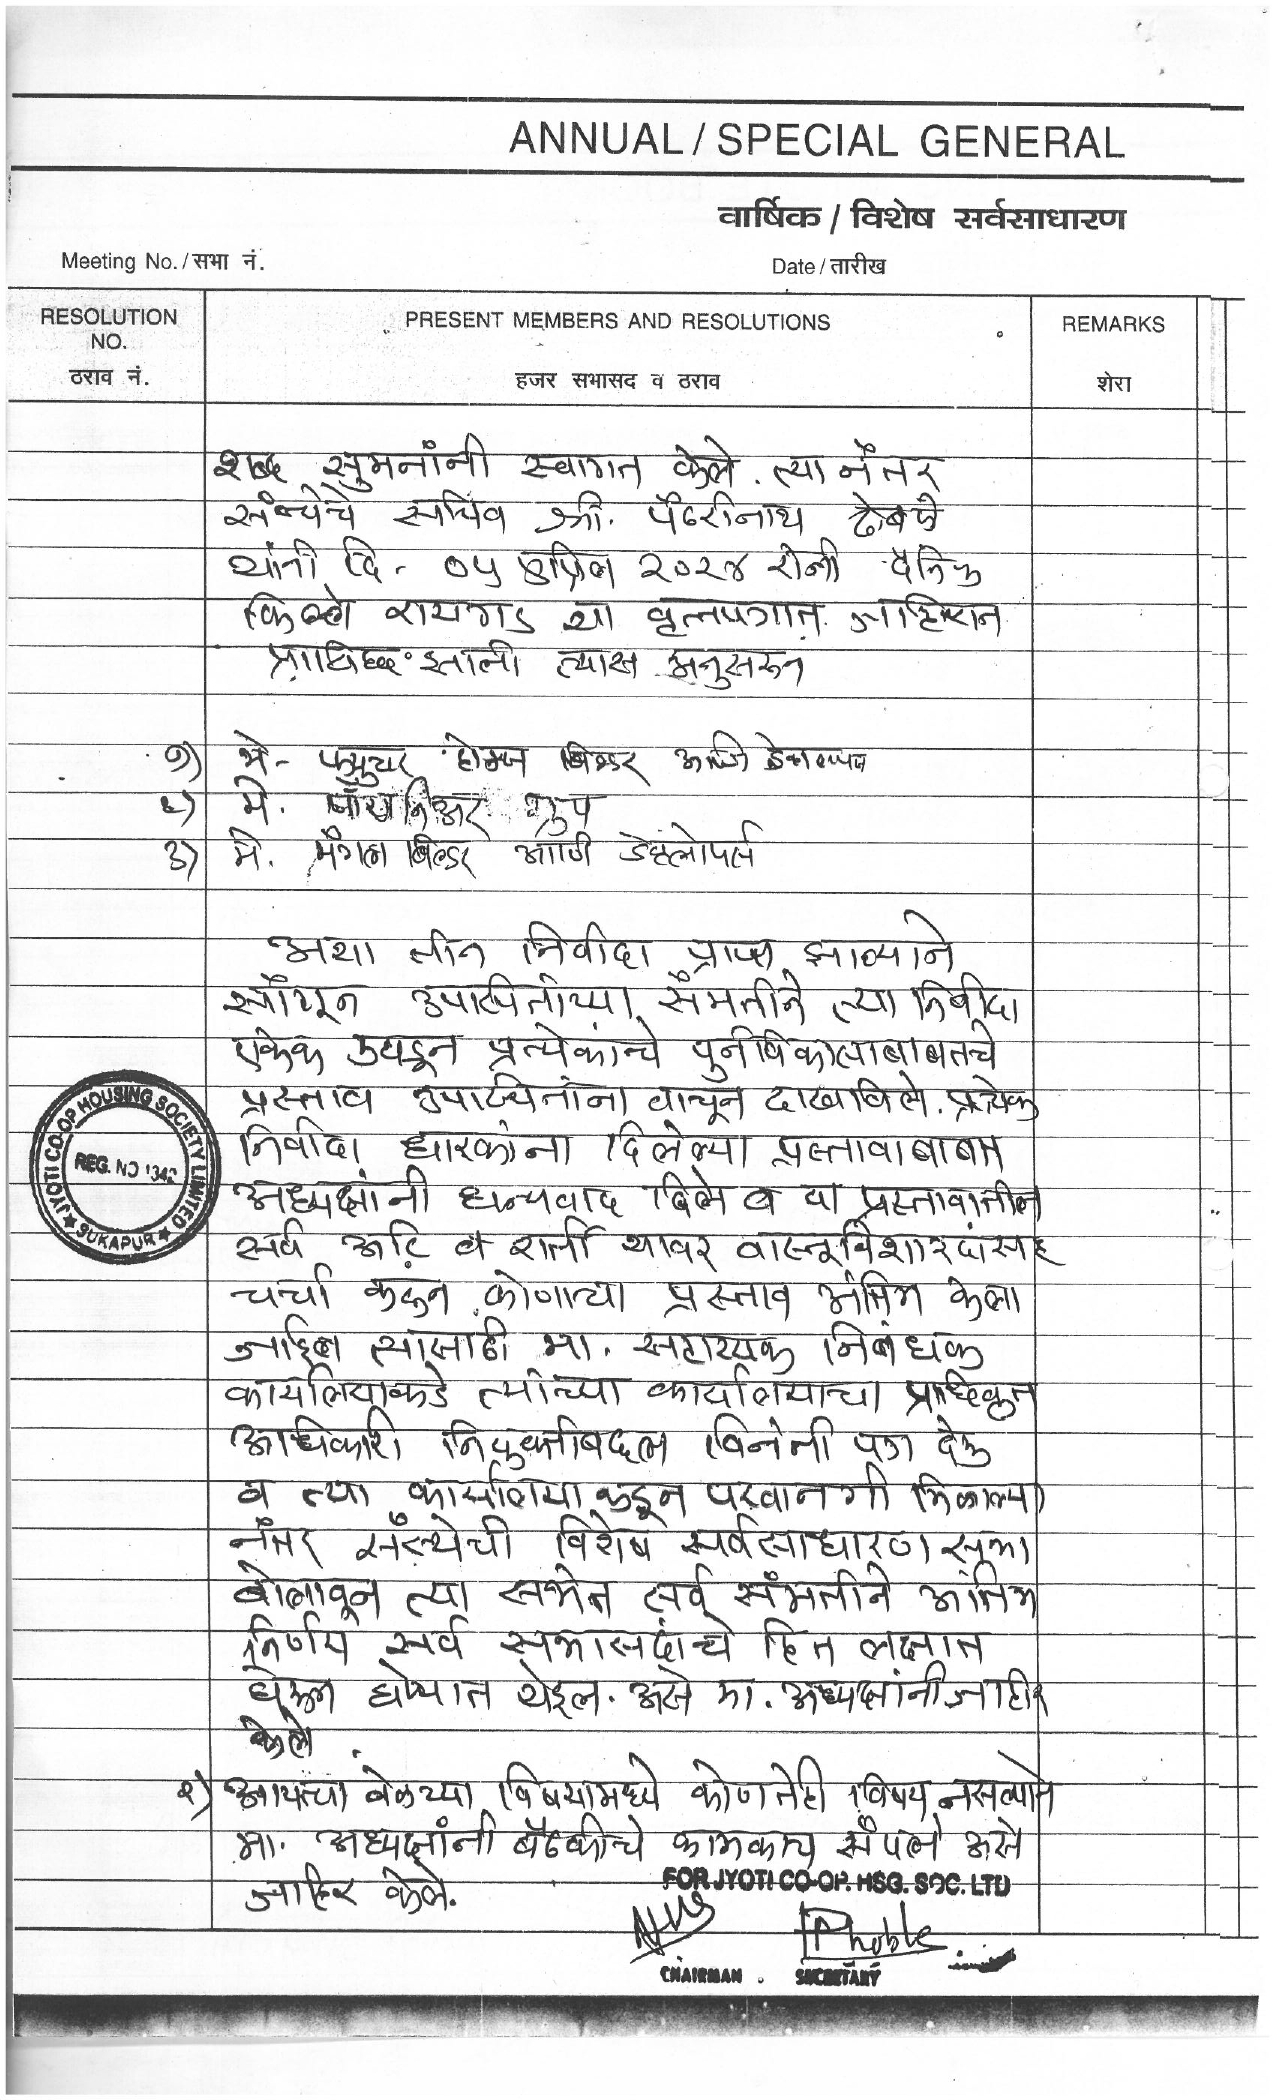 ANNUAL / SPECIAL GENERAL
वार्षिक / विशेष सर्वसाधारण
Meeting No. / सभा नं.
Date / तारीख
RESOLUTION NO.
ठराव नं.
PRESENT MEMBERS AND RESOLUTIONS
हजर सभासद व ठराव
REMARKS
शेरा
शब्द सुमनांनी स्वागत केले. त्या नंतर
संस्थेचे सचिव श्री. पंढरीनाथ
यांनी दि. ०५ एप्रिल २०२४ रोजी दैनिक
किल्ले रायगड या वृत्तपत्रात जाहिरात
प्रसिध्द झाली त्यास अनुसरून
१) मे. फ्युचर होम्ज बिल्डर आणि
२) मे. पायोनिअर ग्रुप
३) मे. मंगल बिल्डर आणि डेव्हलोपर्स
अशा तीन निवीदा प्राप्त झाल्याने
उपस्थितांच्या संमतीने त्या निवीदा
एकेक उघडून प्रत्येकाचे पुर्नविकासाबाबतचे
प्रस्ताव उपस्थितांना वाचून दाखविले. प्रत्येक
निवीदा धारकांना दिलेल्या प्रस्तावाबाबत
अध्यक्षांनी धन्यवाद दिले व या प्रस्तावातील
सर्व अटि व शर्ती यावर वास्तूविशारदांसह
चर्चा करून कोणाचा प्रस्ताव अंतिम केला
जाईल त्यासाठी मा. सहाय्यक निबंधक
कार्यालयाकडे त्यांच्या कार्यालयाचा प्राधिकृत
अधिकारी नियुक्तीबद्दल विनंती पत्र देऊ
व त्या कार्यालयाकडून परवानगी मिळाल्या
नंतर संस्थेची विशेष सर्वसाधारण सभा
बोलावून त्या सभेत सर्व संमतीने अंतिम
निर्णय सर्व सभासदांचे हित लक्षात
घेऊन घेण्यात येईल. असे मा. अध्यक्षांनी जाहीर
केले.
२) आयत्या वेळच्या विषयामध्ये कोणतेही विषय नसल्याने
मा. अध्यक्षांनी बैठकीचे कामकाज संपले असे
जाहिर केले.
JYOTI CO-OP HOUSING SOCIETY LIMITED
REG. NO 1342
SUKAPUR
FOR JYOTI CO-OP. HSG. SOC. LTD
CHAIRMAN SECRETARY